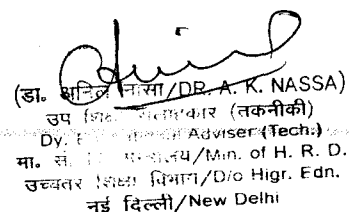 (डा. अनिल नासा/DR. A. K. NASSA)
उप शिक्षा सलाहकार (तकनीकी)
Dy. Adviser (Tech.)
मा. सं. /Min. of H. R. D.
उच्चतर शिक्षा विभाग/D/o Higr. Edn.
नई दिल्ली/New Delhi